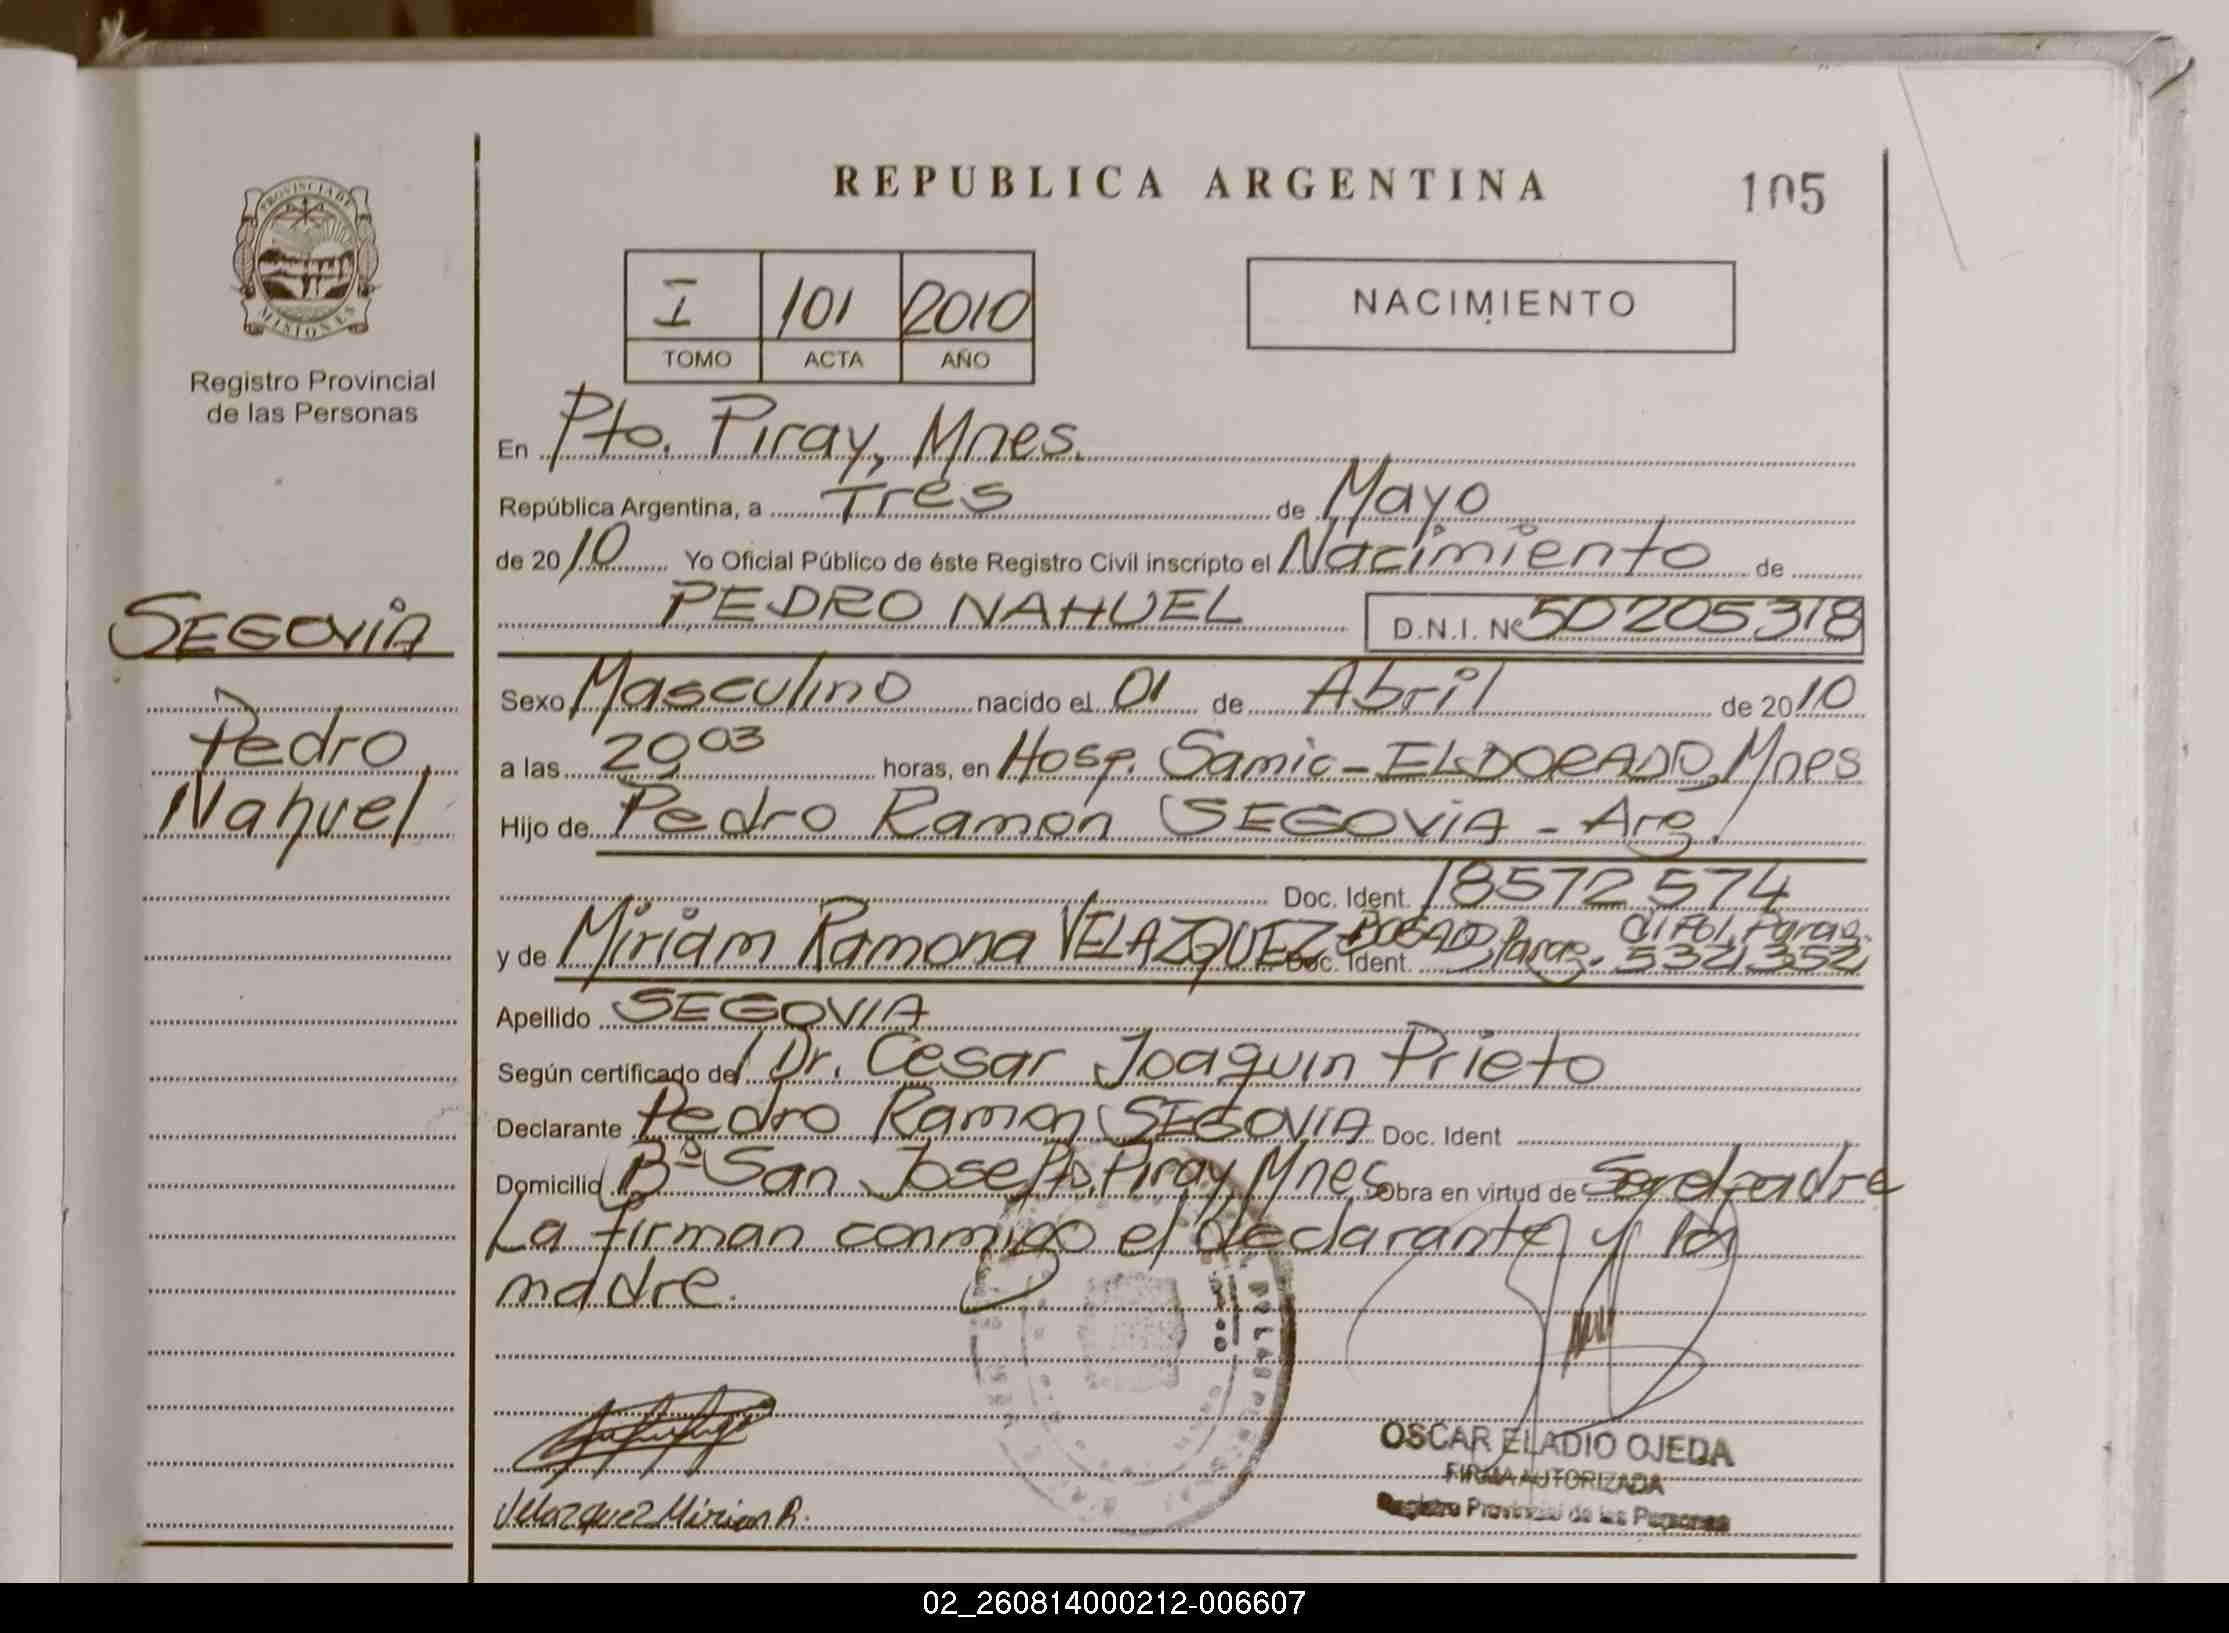 REPUBLICA ARGENTINA
105
PROVINCIA DE
MISIONES
Registro Provincial
de las Personas
I 101 2010
TOMO ACTA AÑO
NACIMIENTO
En Pto. Piray, Mnes.
República Argentina, a Tres de Mayo
de 2010 Yo Oficial Público de éste Registro Civil inscripto el Nacimiento de
PEDRO NAHUEL D.N.I. Nº 50205318
SEGOVIA
Pedro
Nahuel
Sexo Masculino nacido el 01 de Abril de 2010
a las 20 03 horas, en Hosp. Samic - ELDORADO, Mnes
Hijo de Pedro Ramon SEGOVIA - Arg.
Doc. Ident. 18572574
y de Miriam Ramona VELAZQUEZ Doc. Ident. Parag. CI Pol. Parag. 5321352
Apellido SEGOVIA
Según certificado del Dr. Cesar Joaquin Prieto
Declarante Pedro Ramon SEGOVIA Doc. Ident
Domicilio Bº San Jose Pto. Piray, Mnes Obra en virtud de Ser el padre
La firman conmigo el declarante y la
madre.
Velazquez Mirian R.
OSCAR ELADIO OJEDA
FIRMA AUTORIZADA
Registro Provincial de las Personas
02_260814000212-006607